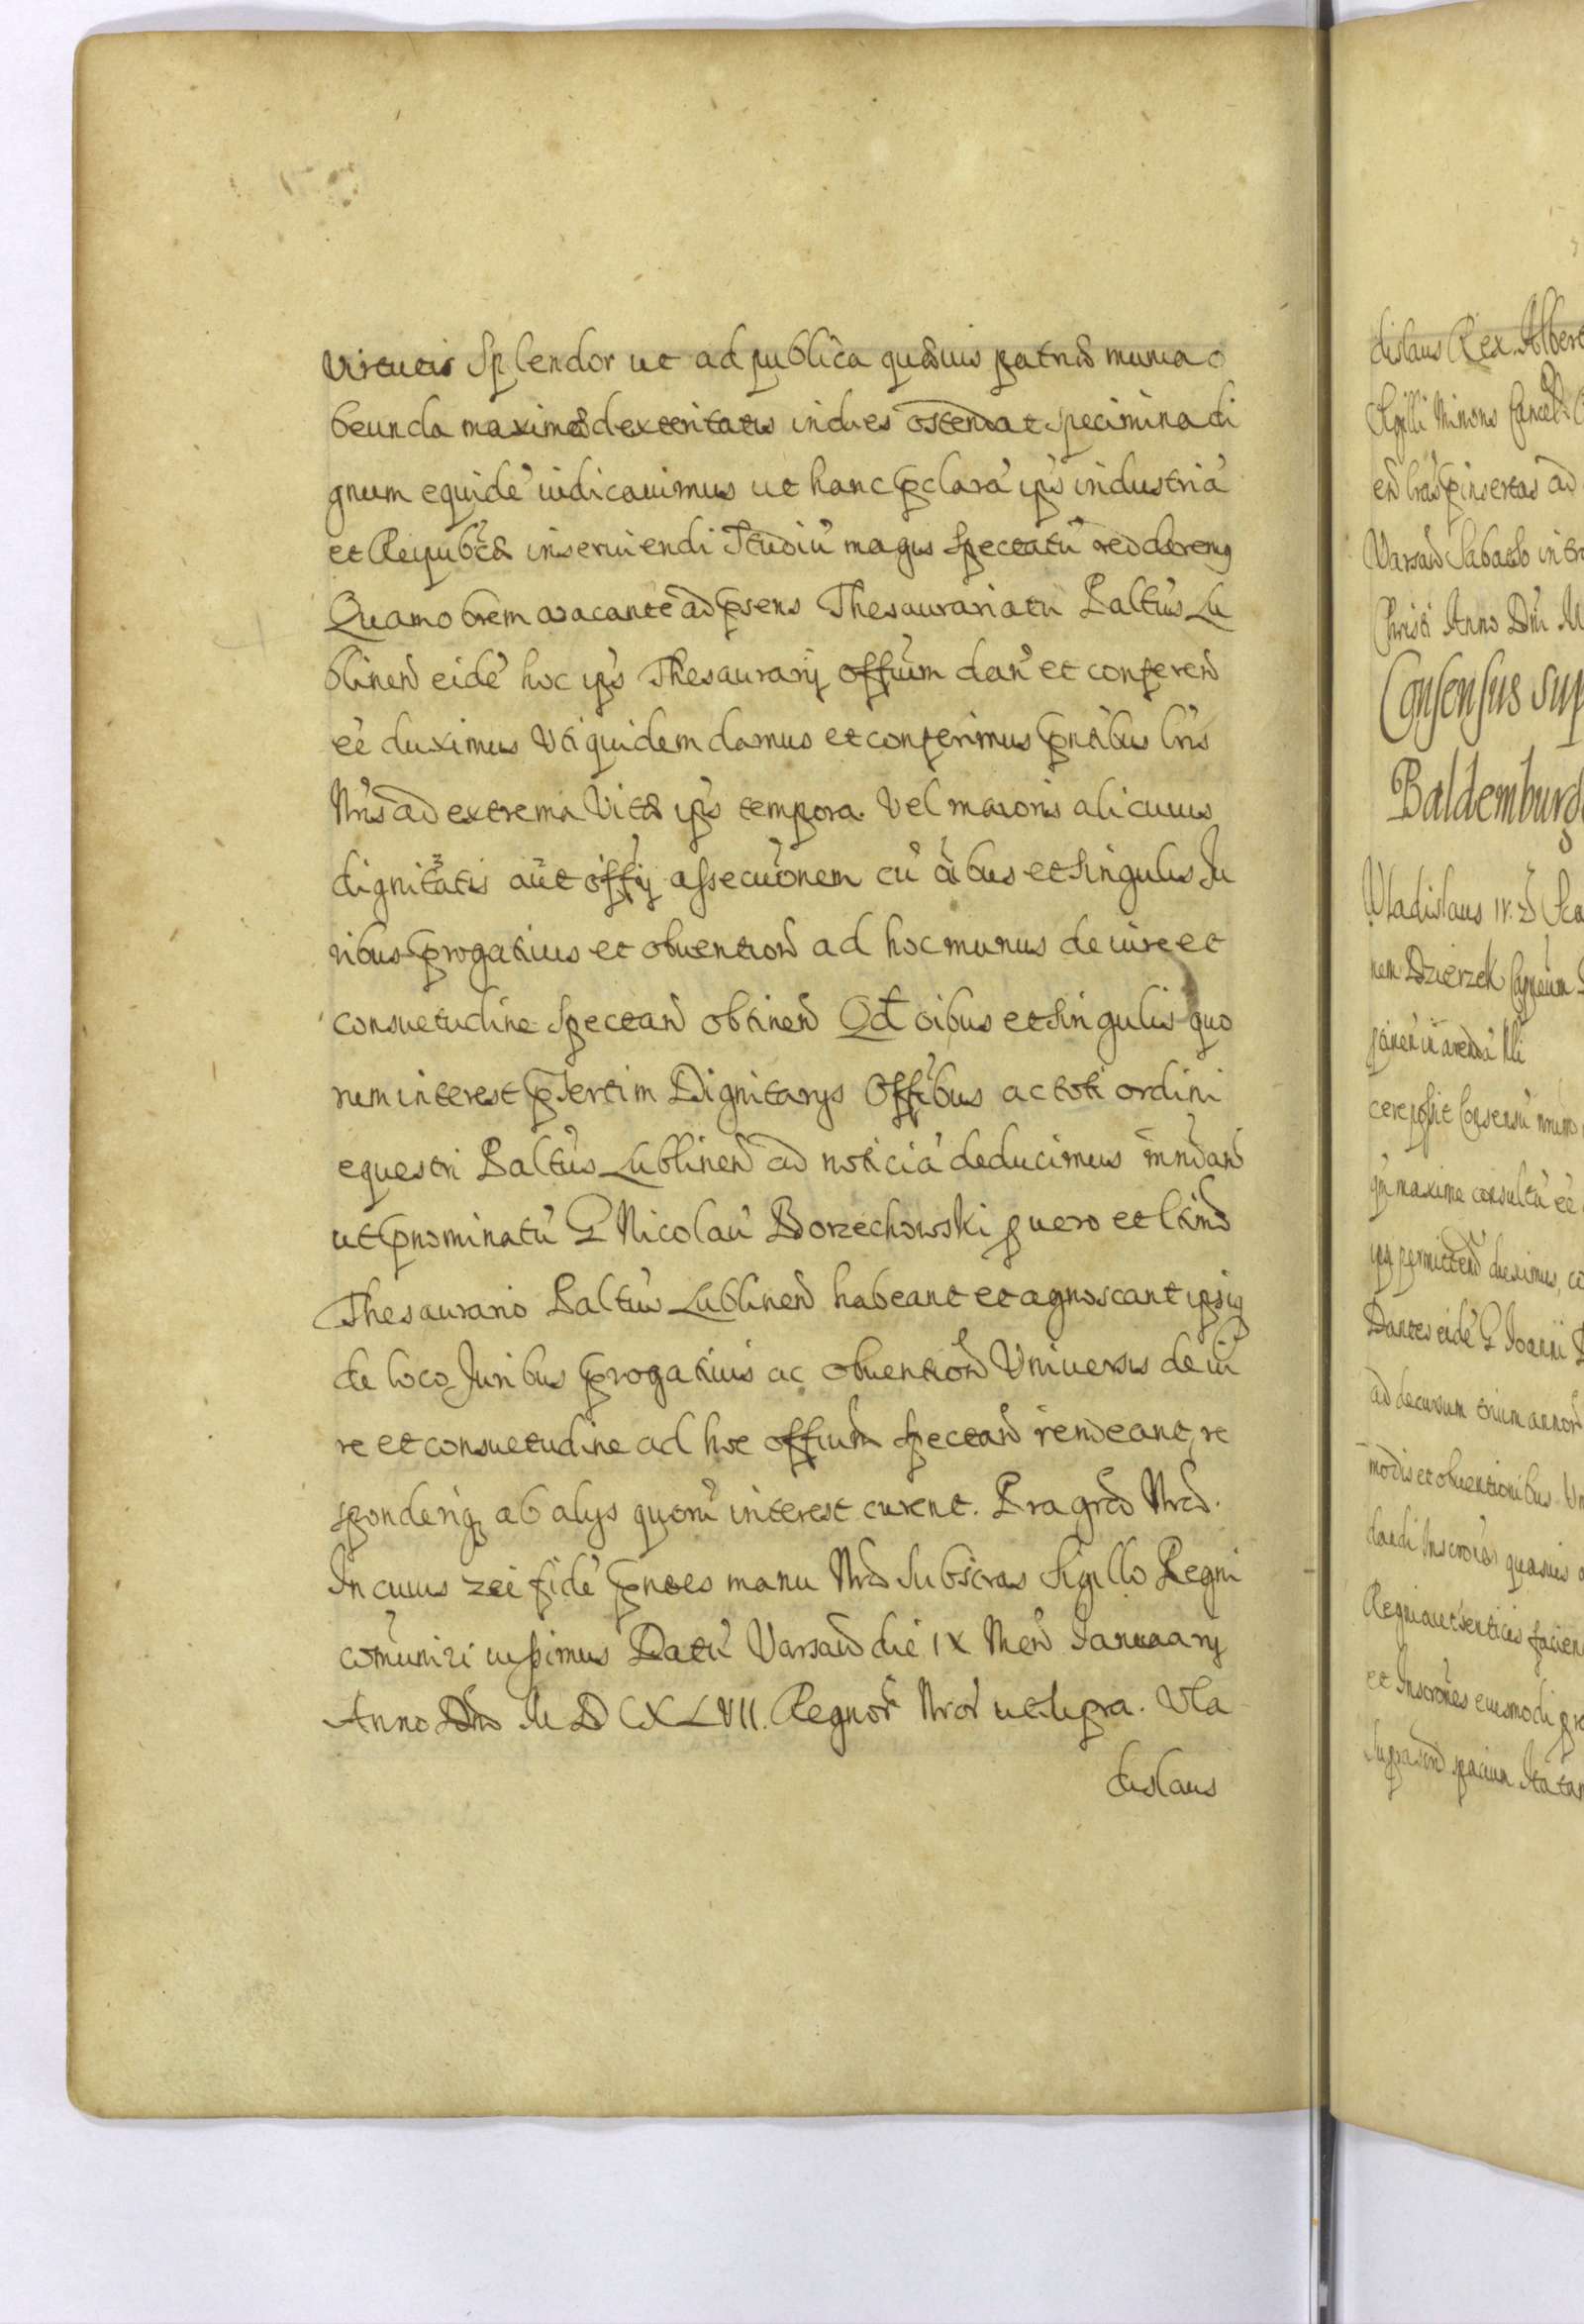 virtutis splendor ut ad publica quævis patriæ munia o
beunda maximæ dexteritatis indies ostendat specimina di
gnum equidé iudicauimus ut hanc pclará ips industriá
et Reipubcæ inseruiendi Studiú magis spectatú redderemq
Quamobrem vacante ad psens Thesaurariatu Paltus Lu
blinen eidé hoc ips Thesaurarij offium dan et conferen
eé duximus Uti quidem damus et conferimus pntibus lris
Nris ad extrema Vitæ ips tempora. Vel maioris alicuius
dignitatis aut offij assecuonem cú oibus et singulis Iu
ribus progatiuis et obuention ad hoc munus de iure et
consuetudine spectan obtinen Qd oibus et singulis quo
rum interest psertim Dignitarys Offibus ac toti ordini
equestri Paltus Lublinen ad noticiá deducimus mndan
ut pnominatú G Nicolaú Borzechowski p uero et ltimo
Thesaurario Paltus Lublinen habeant et agnoscant ipsiq
de loco Iuribus progatiuis ac obuention Vniuersis de iu
re et consuetudine ad hoc offium spectan rendeant, re
sponderiq ab alys quorú interest curent. Pra gra Nra.
In cuius rei fidé pntes manu Nra Subscras Sigillo Regni
comuniri iussimus Datú Varsaw die IX Men January
Anno Dni M D CXLVII. Regnor Nror ut supra. Vla
dislaus
dislaus Rex. Albert
Sigilli Minoris Cancel
en lras pinsertas ad
Varsaw Sabatho intra
Christi Anno Dni M
Consensus sup
Baldemburg
Vladislaus IV. D Sca
nem Dzierzek Capneum
cere possit Consensú nrum
qn maxime consultú eé
ips permitten duximus, co
Dantes eidé G Ioanni D
ad decursum trium annor
modis et obuentionibus Vn
dandi Inscroes quasuis
Regni autenticis facien
et Inscroes eiusmodi pro
suprascri spacium. Ita tam